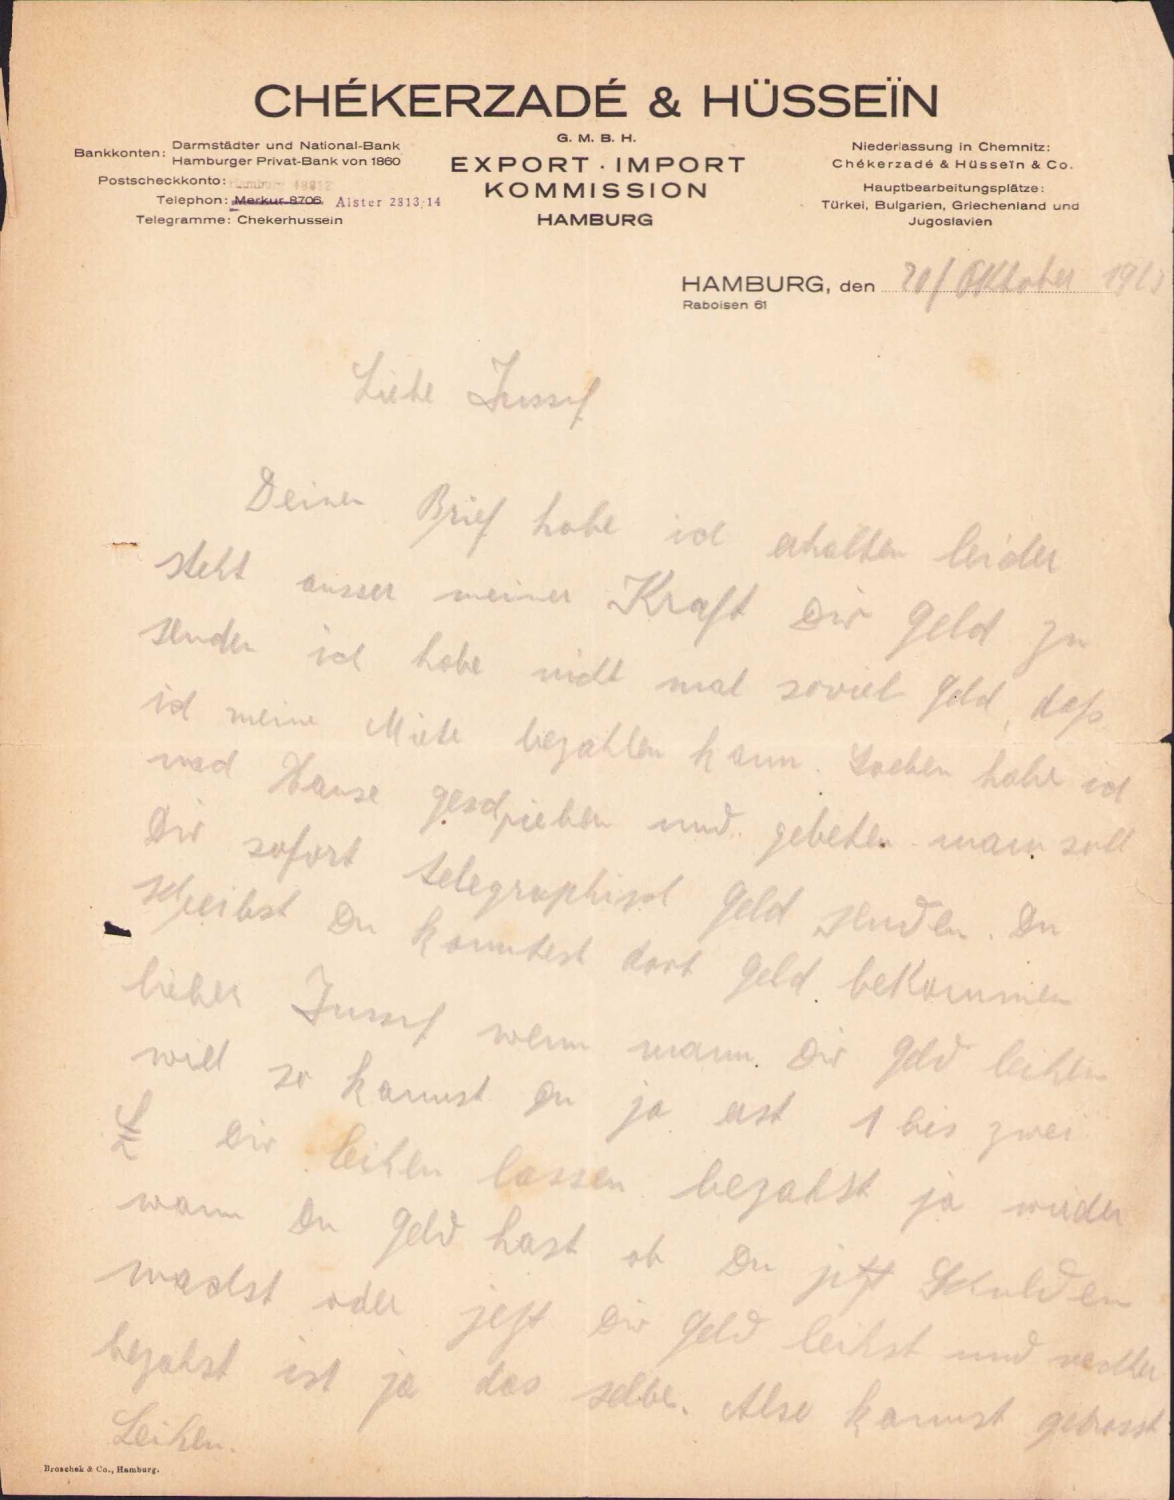 CHÉKERZADÉ & HÜSSEÏN
G. M. B. H.
EXPORT · IMPORT
KOMMISSION
HAMBURG
Bankkonten: Darmstädter und National-Bank
Hamburger Privat-Bank von 1860
Postscheckkonto:
Telephon: Merkur 8706 Alster 2813/14
Telegramme: Chekerhussein
Niederlassung in Chemnitz:
Chékerzadé & Hüsseïn & Co.
Hauptbearbeitungsplätze:
Türkei, Bulgarien, Griechenland und
Jugoslavien
HAMBURG, den 20/ Oktober
Raboisen 61
Liebe Jussuf
Deinen Brief habe ich erhalten leider
steht ausser meiner Kraft Dir Geld zu
senden ich habe nicht mal soviel Geld, daß
ich meine Miete bezahlen kann. Soeben habe ich
nach Hause geschrieben und gebeten man soll
Dir sofort telegraphisch Geld senden. Du
schreibst Du konntest dort Geld bekommen
lieber Jussuf wenn mann Dir Geld leihen
will so kannst Du ja erst 1 bis zwei
£ Dir leihen lassen bezahst ja wieder
wann Du Geld hast ob Du jetzt Schulden
machst oder jetzt Dir Geld leihst und nachher
bezahst ist ja das selbe. Also kannst getrosst
Leihen.
Broschek & Co., Hamburg.